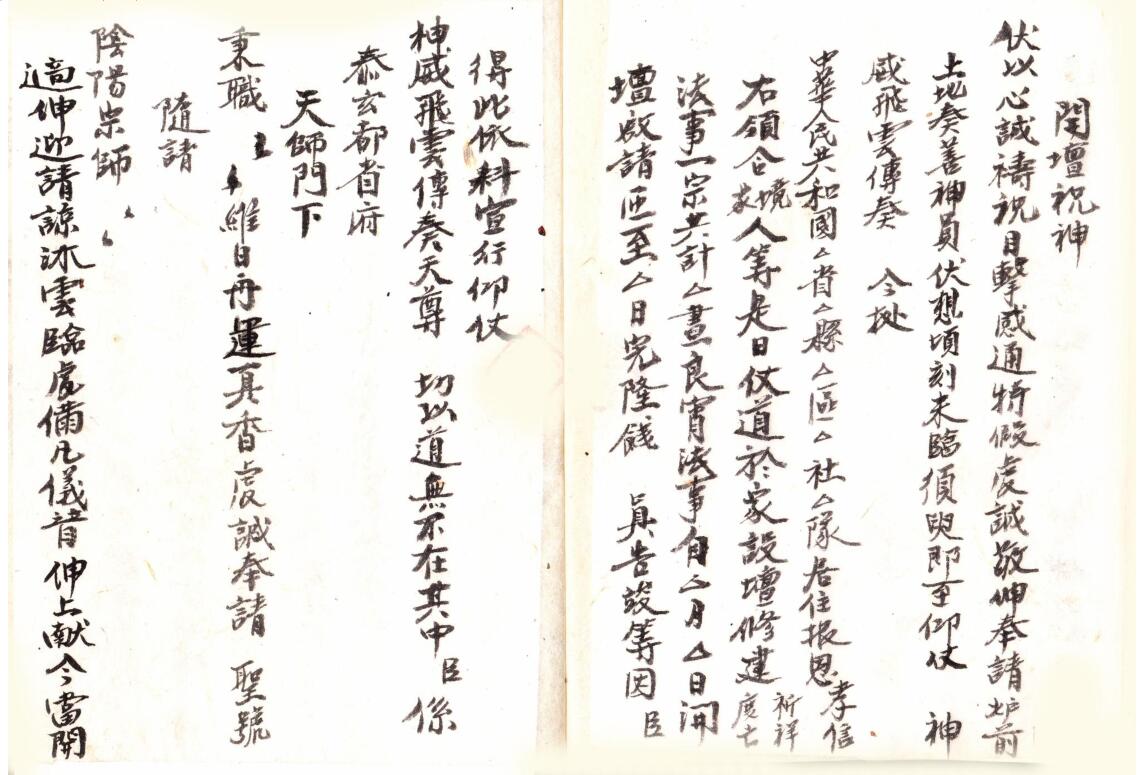 開壇祝神
伏以心誠禱祝目擊感通特假虔誠敬伸奉請炉前
土地奏善神員伏想頃刻未臨須臾即至仰仗 神
威飛雲傳奏 今据
中華人民共和國△省△縣△區△社△隊居住报恩孝信
右領合境家人等是日仗道於家設壇修建祈祥度亡
法事一宗共計△晝良宵法事自△月△日開
壇啟請匝至△日完隆餞 具告竣等因 臣
得此依科宣行仰仗
神威飛雲傳奏天尊 切以道無不在其中臣係
泰玄都省府
天師門下
秉職 維日再運真香虔誠奉請 聖號
隨請
陰陽宗師
適伸迎請諒沐雲臨虔備凡儀音伸上献今當開